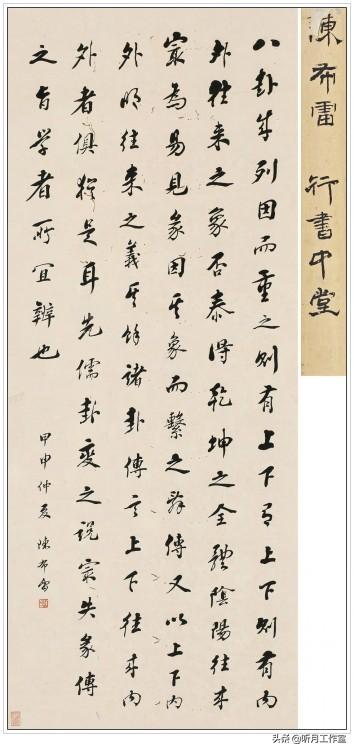 陳布雷 行書中堂
八卦成列因而重之則有上下有上下則有內
外往來之象否泰得乾坤之全體陰陽往來
最為易見彖因其象而繫之辭傳又以上下內
外明往來之義其餘諸卦傳言上下往來內
外者俱猶是耳先儒卦變之說最失彖傳
之旨學者所宜辨也
甲申仲夏 陳布雷
头条 @听月工作室